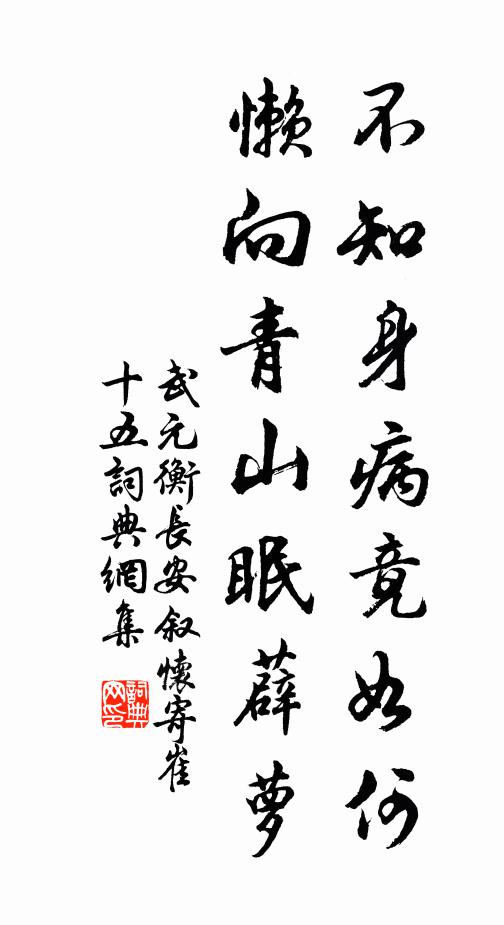 不知身病竟如何
懶向青山眠薜萝
武元衡長安叙懷寄崔
十五詞典網集
詞典
网印